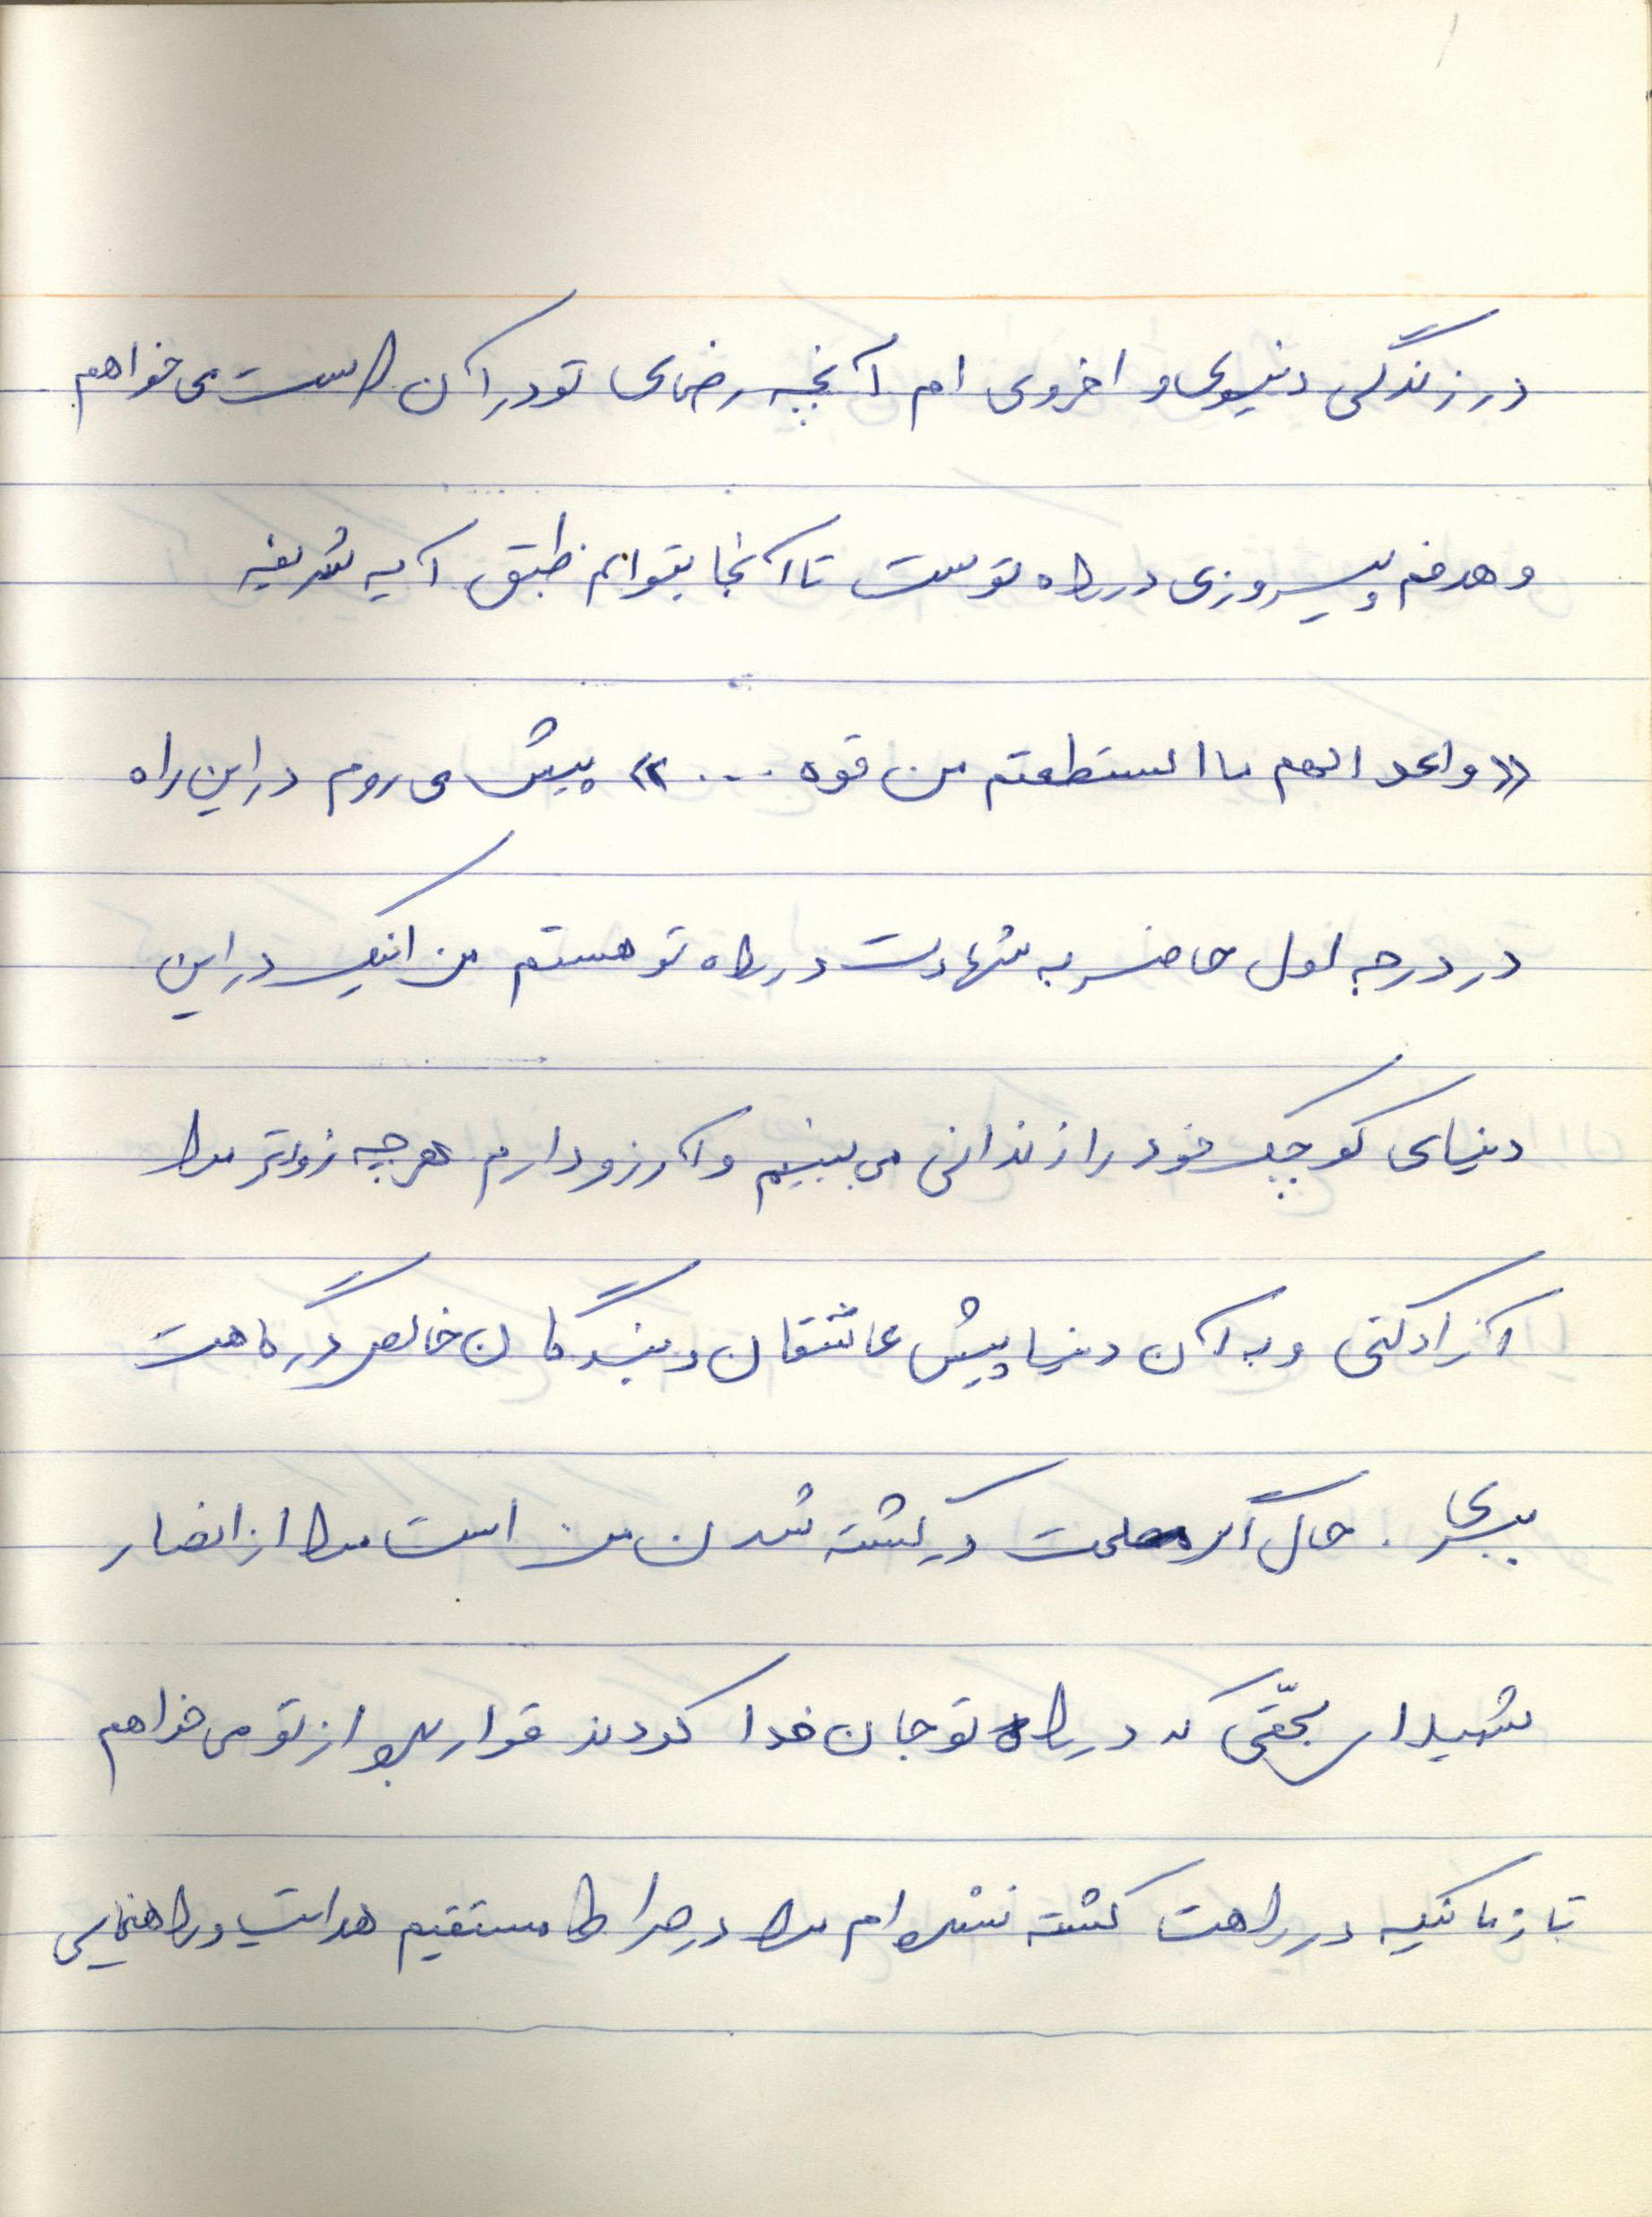 در زندگی دنیوی و اخروی ام آنچه رضای تو در آن است می خواهم
و هدفم پیروزی در راه توست تا آنجا بتوانم طبق آیه شریفه
«واعدوالهم ما استطعتم من قوه ...» پیش می روم در این راه
در درجه اول حاضر به شهادت در راه تو هستم من اینک در این
دنیای کوچک خود را زندانی می بینم و آرزو دارم هر چه زودتر مرا
آزاد کنی و به آن دنیا پیش عاشقان و بندگان خالص درگاهت
ببری . حال اگر مصلحت در کشته شدن من است مرا از انصار
شهیدان بحقی که در راه تو جان فدا کردند قرار بده از تو می خواهم
تا زمانیکه در راهت کشته نشده ام مرا در صراط مستقیم هدایت و راهنمایی